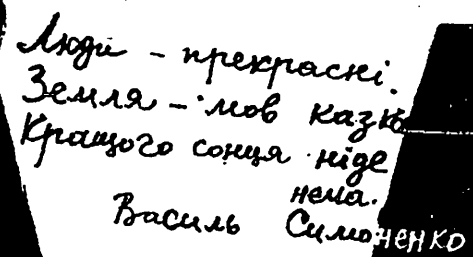 Люди – прекрасні.
Земля – мов казка
Кращого сонця ніде
нема.
Василь Симоненко